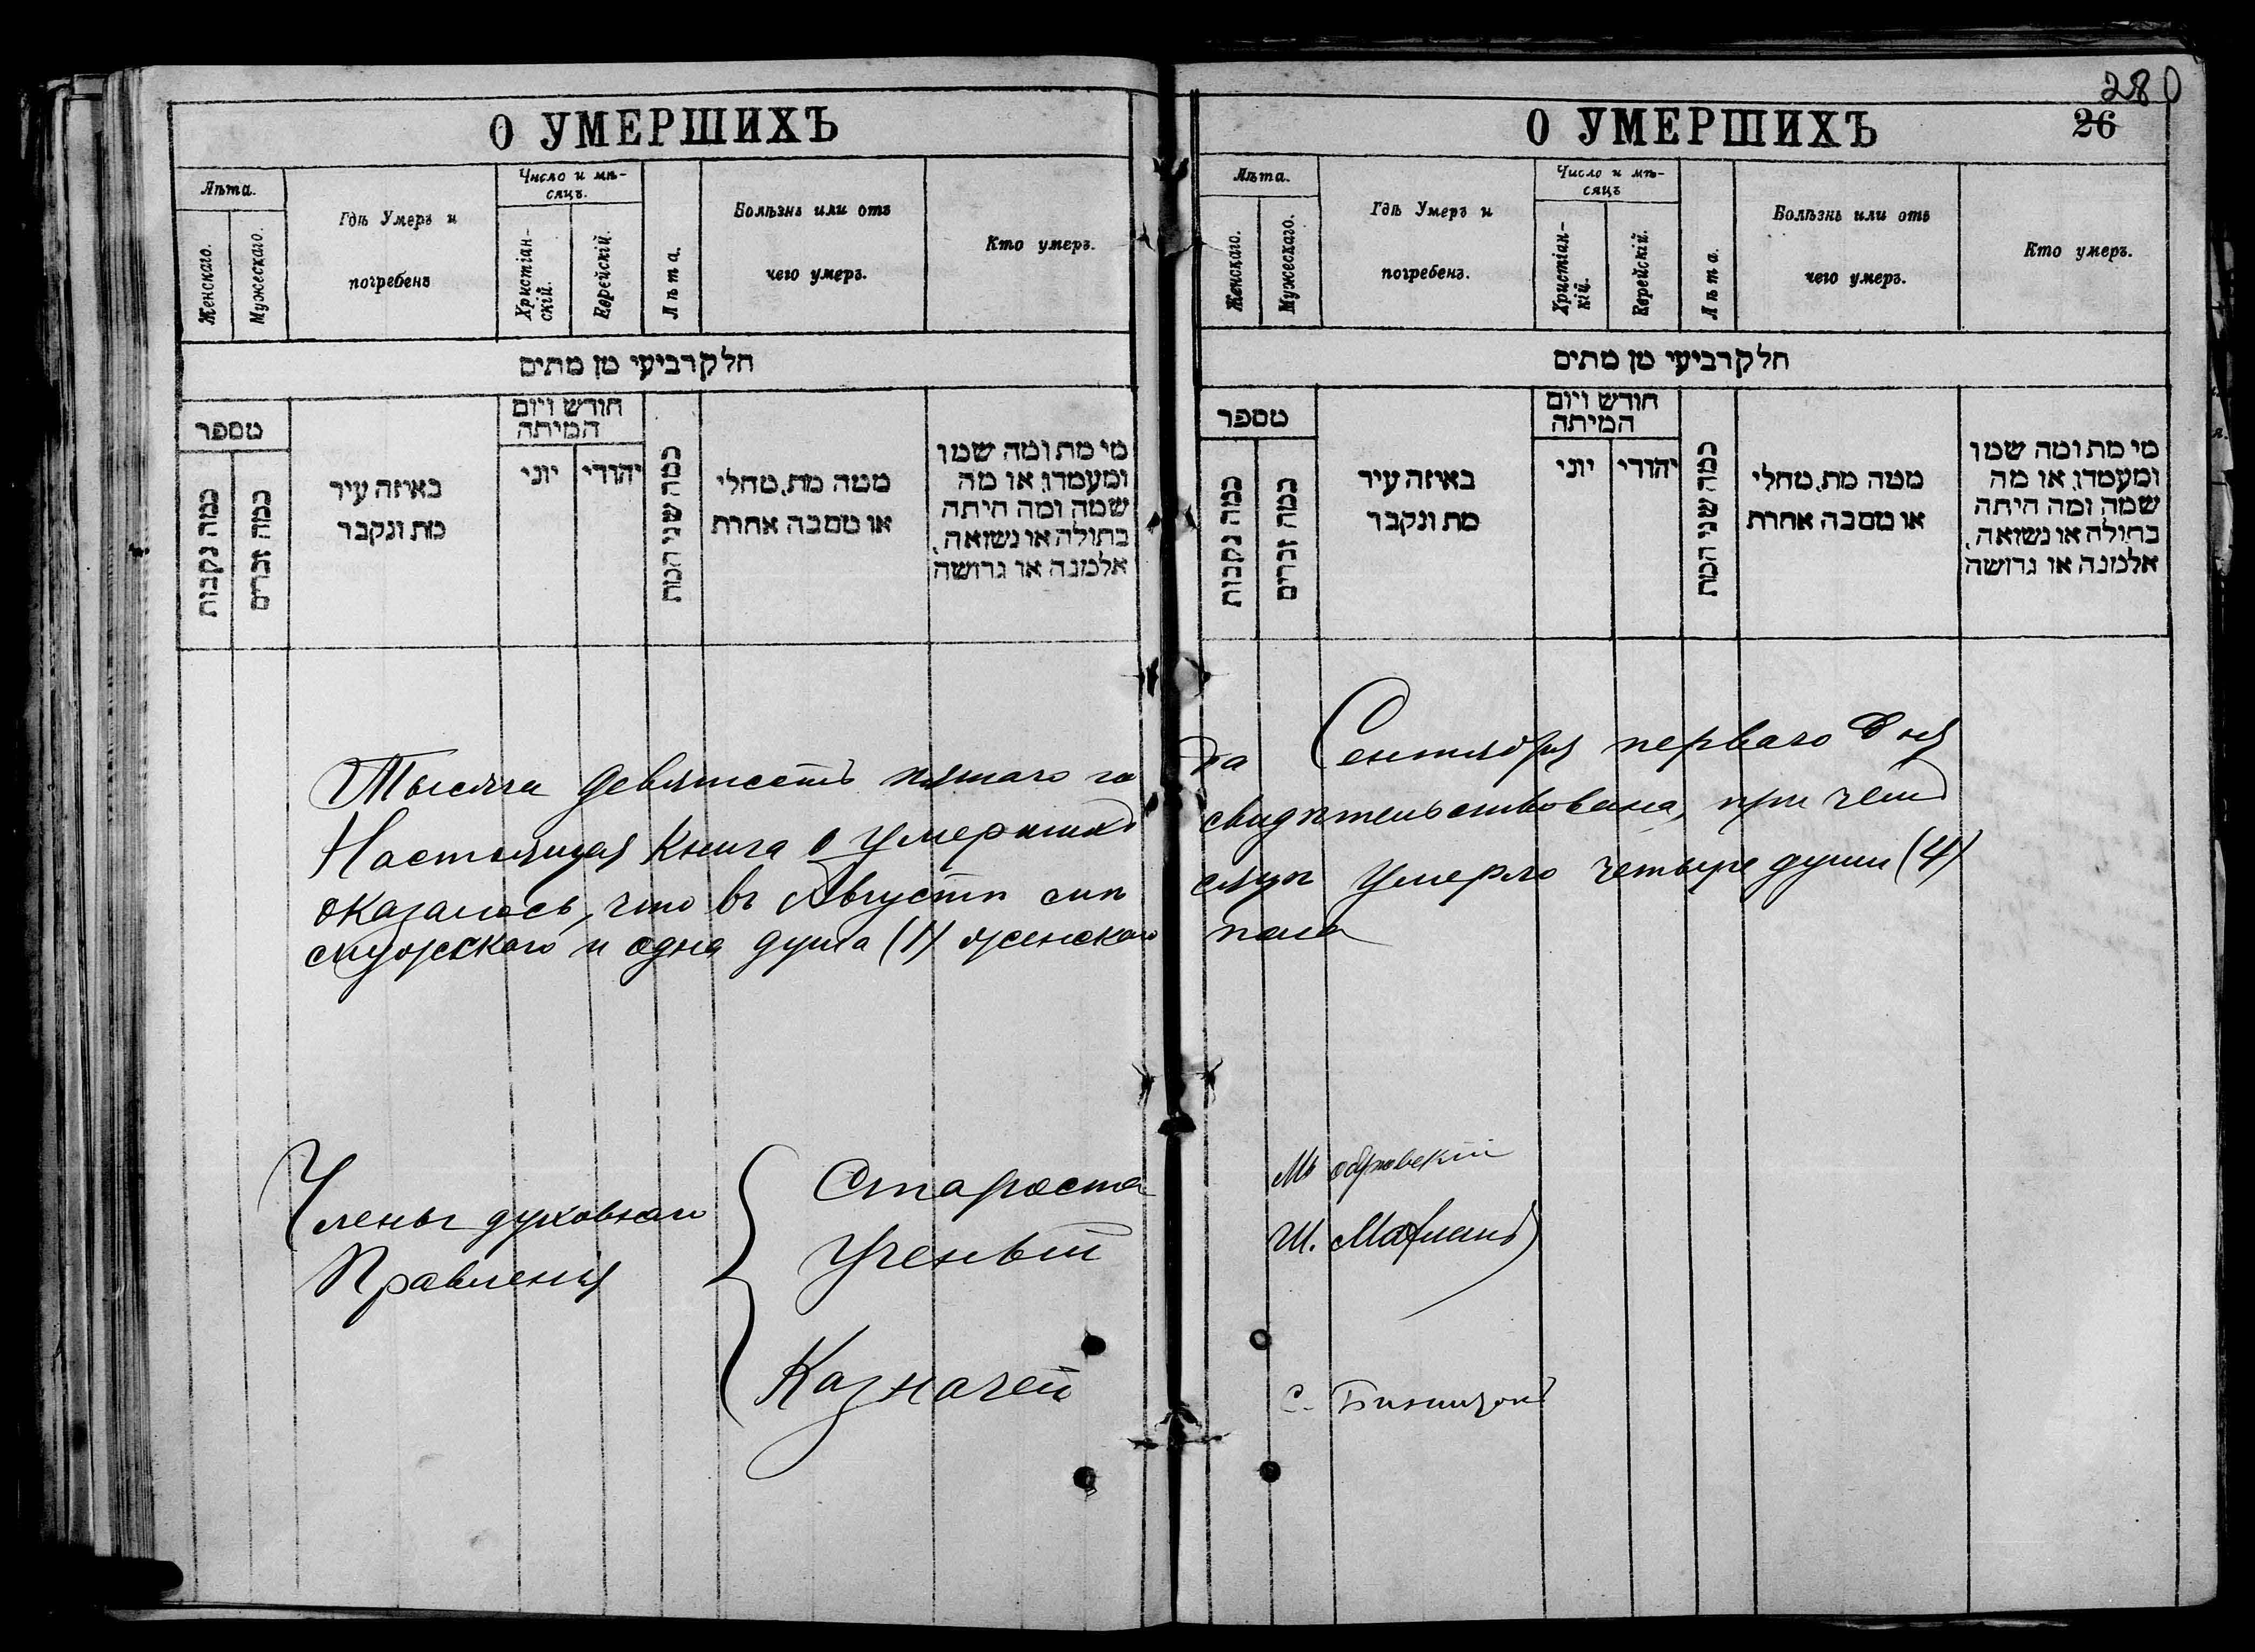 280
О УМЕРШИХЪ
Лѣта.
Женскаго.
Мужескаго.
Гдѣ Умеръ и
погребенъ
Число и мѣ-
сяцъ.
Христіан-
скій.
Еврейскій.
Лѣта.
Болѣзнь или отъ
чего умеръ.
Кто умеръ.
חלק רביעי מן מתים
מספר
כמה נקבות
כמה זכרים
באיזה עיר
מת ונקבר
חודש ויום
המיתה
יוני
יהודי
כמה שני המת
ממה מת, מחלי
או מסבה אחרת
מי מת ומה שמו
ומעמדו, או מה
שמה ומה היתה
בתולה או נשואה,
אלמנה או גרושה
О УМЕРШИХЪ
26
Лѣта.
Женскаго.
Мужескаго.
Гдѣ Умеръ и
погребенъ.
Число и мѣ-
сяцъ
Христіан-
кій.
Еврейскій.
Лѣта.
Болѣзнь или отъ
чего умеръ.
Кто умеръ.
חלק רביעי מן מתים
מספר
כמה נקבות
כמה זכרים
באיזה עיר
מת ונקבר
חודש ויום
המיתה
יוני
יהודי
כמה שני המת
ממה מת, מחלי
או מסבה אחרת
מי מת ומה שמו
ומעמדו, או מה
שמה ומה היתה
בתולה או נשואה,
אלמנה או גרושה
Тысяча девятсотъ пятаго года Сентября перваго дня
Настоящая книга о умершихъ свидѣтельствована, при чемъ
оказалось, что въ Августѣ мѣсяцѣ умерло четыре души (4)
мужскаго и одна душа (1) женскаго пола
Члены духовнаго
Правленія
Староста
Ученый
Ш.
Казначей
С.